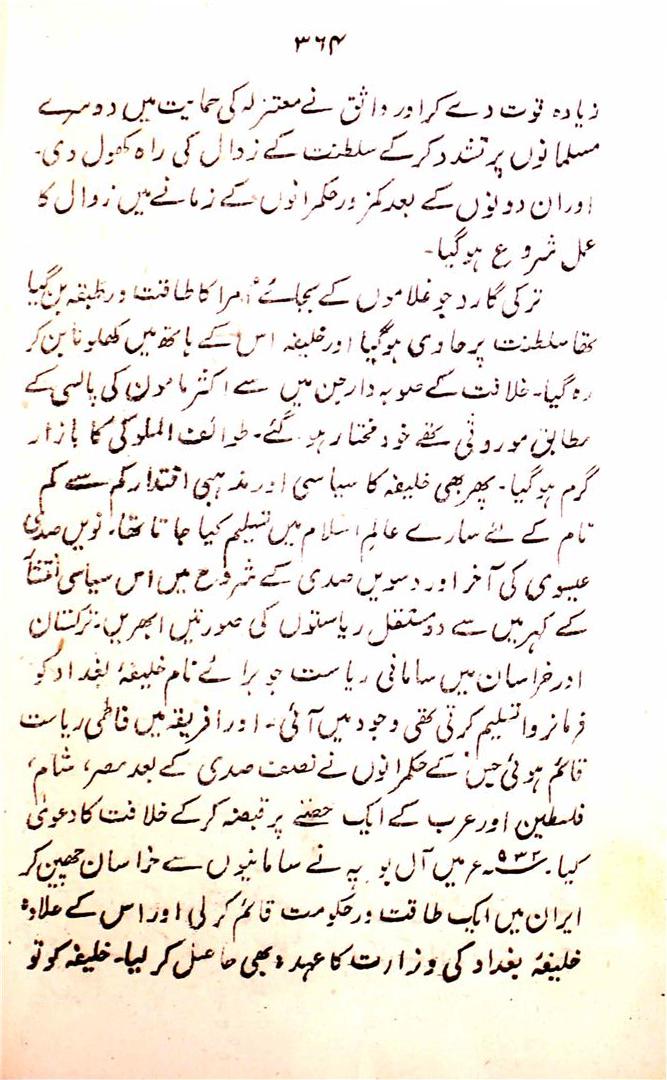 ۳۶۴
زیادہ قوت دے کر اور واثق نے معتزلہ کی حمایت میں دوسرے
مسلمانوں پر تشدد کرکے سلطنت کے زوال کی راہ کھول دی۔
اور ان دونوں کے بعد کمزور حکمرانوں کے زمانے میں زوال کا
عمل شروع ہوگیا۔
ترکی گارد جو غلاموں کے بجائے امرا کا طاقت ور طبقہ بن گیا
تھا سلطنت پر حاوی ہوگیا اور خلیفہ اس کے ہاتھ میں کھلونا بن کر
رہ گیا۔ خلافت کے صوبہ دار جن میں سے اکثر مامون کی پالسی کے
مطابق موروثی تھے خود مختار ہو گئے۔ طوائف الملوکی کا بازار
گرم ہوگیا۔ پھر بھی خلیفہ کا سیاسی اور مذہبی اقتدار کم سے کم
نام کے لئے سارے عالم اسلام میں تسلیم کیا جاتا تھا۔ نویں صدی
عیسوی کی آخر اور دسویں صدی کے شروع میں اس سیاسی انتشار
کے کہر میں سے دو مستقل ریاستوں کی صورتیں ابھریں۔ ترکستان
اور خراسان میں سامانی ریاست جو برائے نام خلیفۂ بغداد کو
فرمانروا تسلیم کرتی تھی وجود میں آئی۔ اور افریقہ میں فاطمی ریاست
قائم ہوئی جس کے حکمرانوں نے نصف صدی کے بعد مصر، شام،
فلسطین اور عرب کے ایک حصّے پر قبضہ کرکے خلافت کا دعویٰ
کیا۔ ۹۳۲ء میں آل بویہ نے سامانیوں سے خراسان چھین کر
ایران میں ایک طاقت ور حکومت قائم کرلی اور اس کے علاوہ
خلیفۂ بغداد کی وزارت کا عہدہ بھی حاصل کر لیا۔ خلیفہ کو تو